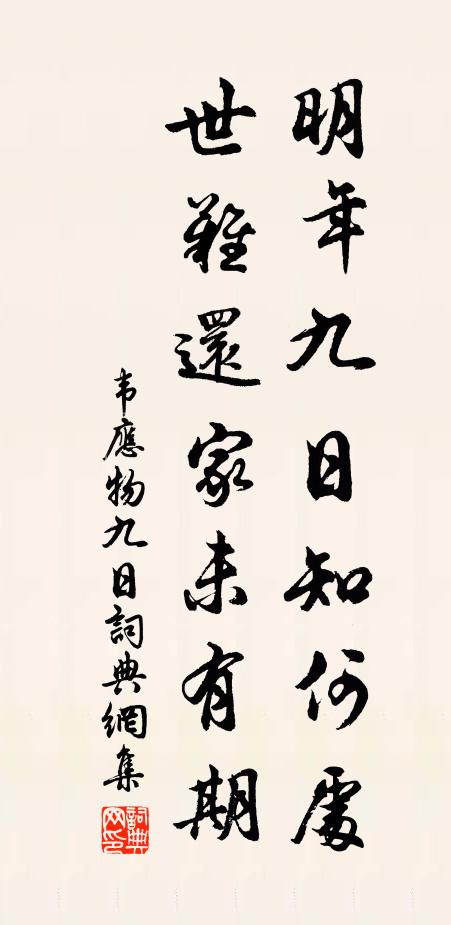 明年九日知何處
世難還家未有期
韦應物九日詞典網集
詞典網印